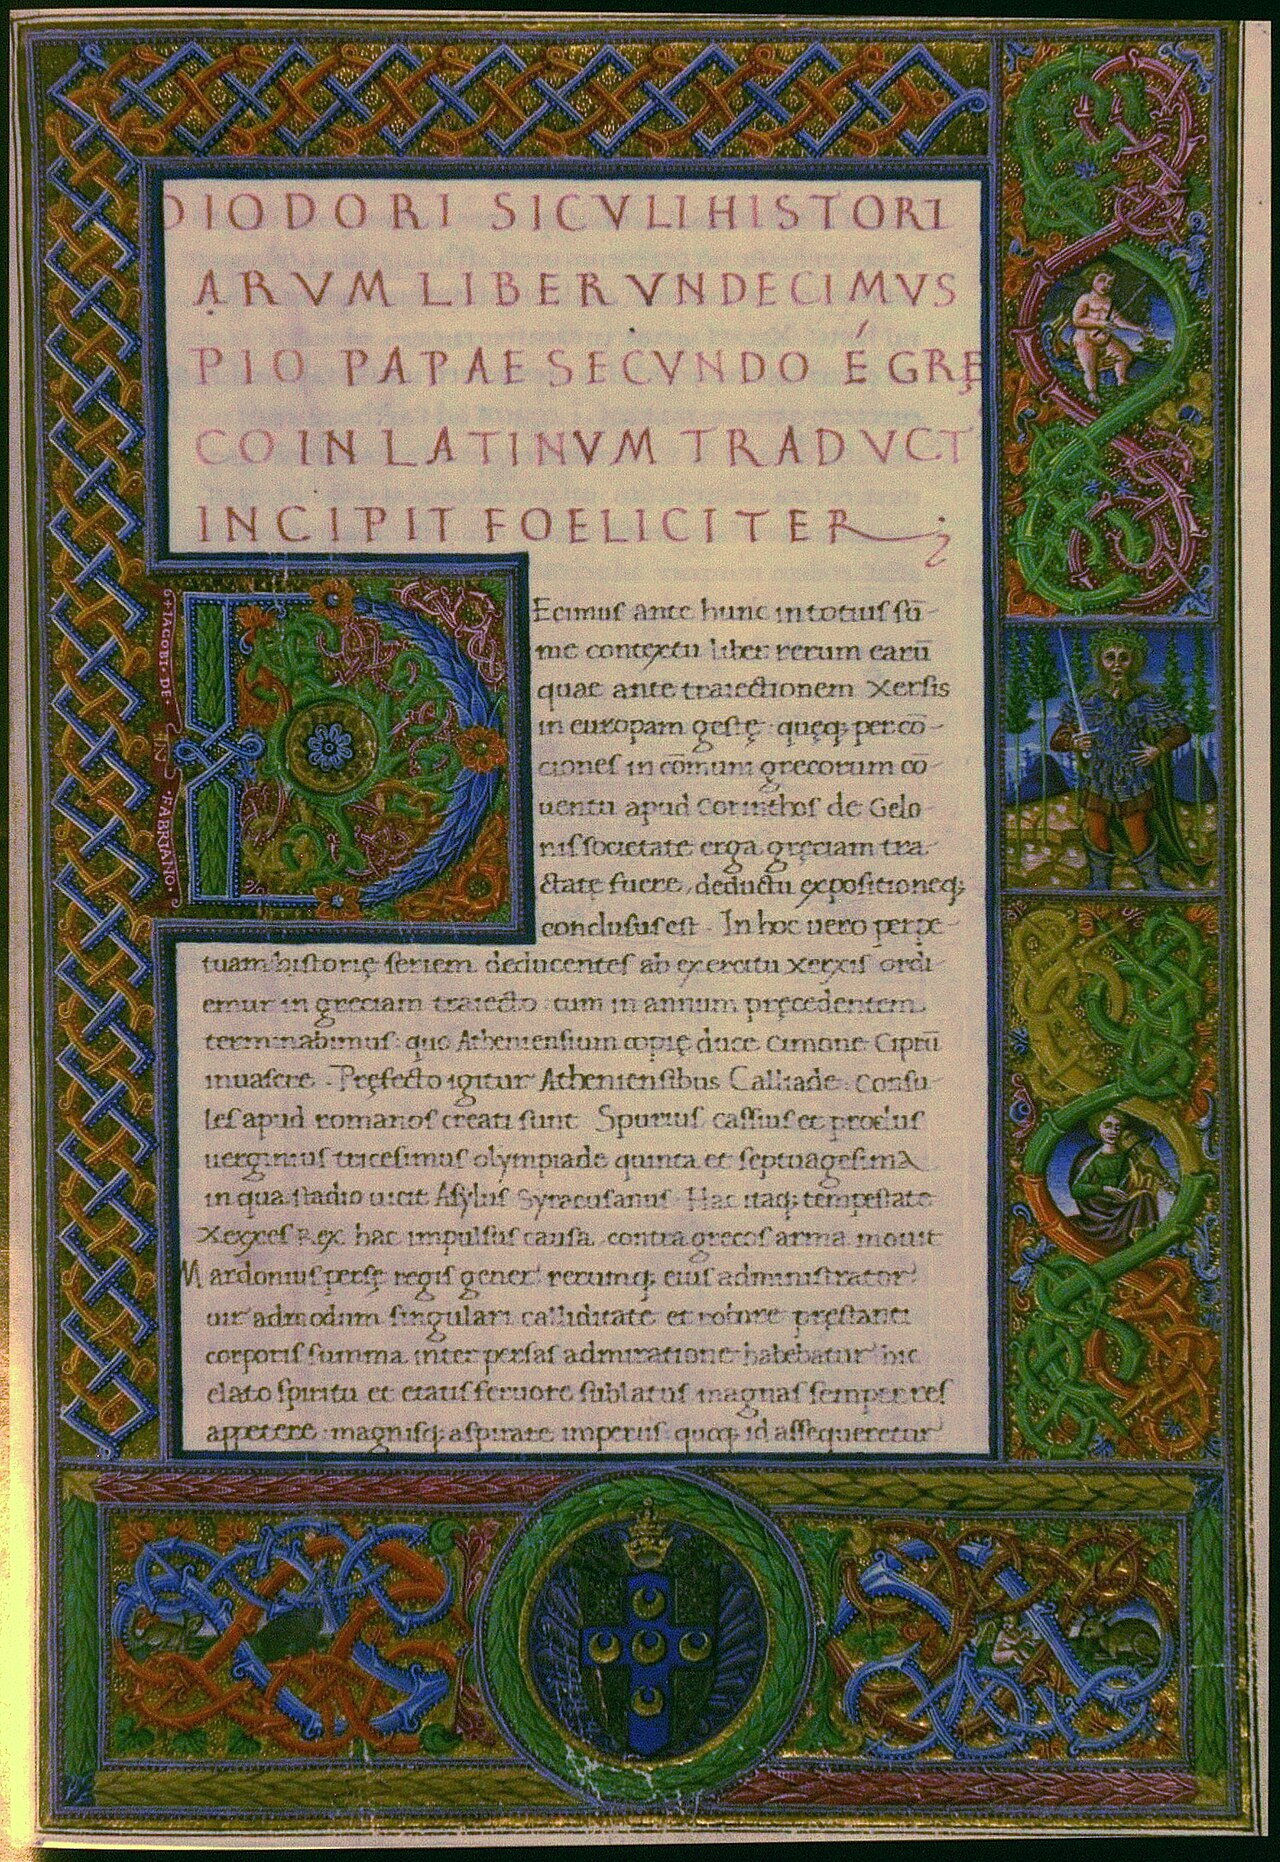 DIODORI SICVLI HISTORI
ARVM LIBER VNDECIMVS
PIO PAPAE SECVNDO É GRĘ
CO IN LATINVM TRADVCT
INCIPIT FOELICITER
IACOBI·DE·
FABRIANO·
Ecimus ante hunc in totius sū
me contextu liber rerum earū
quae ante traiectionem Xersis
in europam gestę quęq; per cō
ciones in cōmuni grecorum cō
uentu apud corinthos de Gelo
nis societate erga gręciam tra
ctatę fuere, deductu expositioneq;
conclusus est. In hoc uero perpe
tuam historię seriem deducentes ab exercitu xerxis ordi
emur in greciam traiecto cum in annum pręcedentem
terminabimus quo Atheniensium copię duce cimone Ciprū
inuasere. Pręfecto igitur Atheniensibus Calliade Consu
les apud romanos creati sunt Spurius cassius et proclus
uerginius tricesimus olympiade quinta et septuagesima
in qua stadio uicit Asylus Syracusanus Hac itaq; tempestate
Xerxes Rex hac impulsus causa contra grecos arma mouit
Mardonius persę regis gener rerumq; eius administrator
uir admodum singulari calliditate et robore pręstanti
corporis summa inter persas admiratione habebatur hic
elato spiritu et etatis feruore sublatus magnas semper res
appetere magnisq; aspirare imperiis quoq; id assequeretur